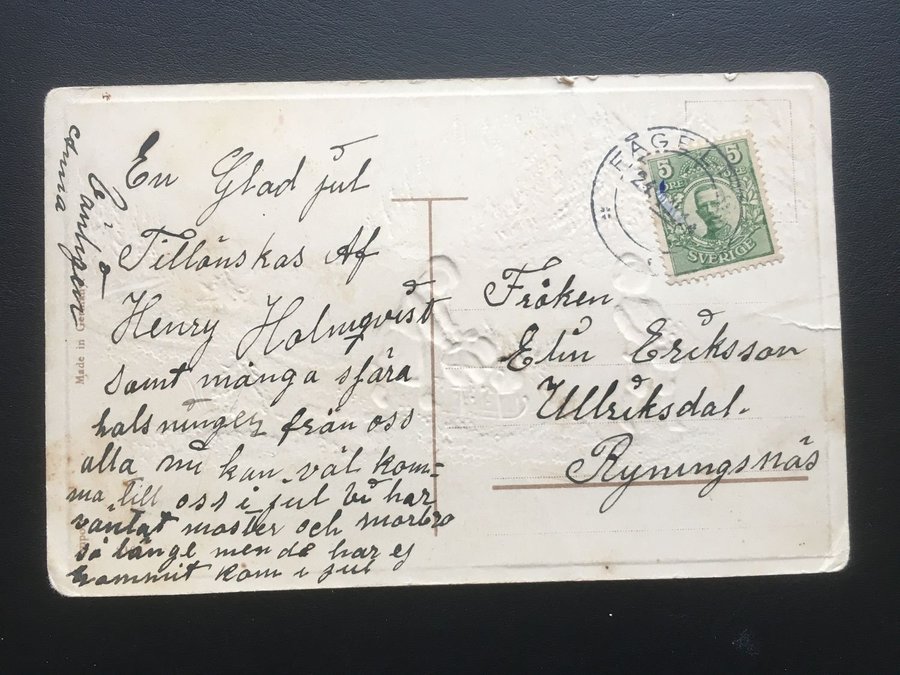 En Glad jul
Tillönskas Af
Henry Holmqvist
samt många sjära
halsninger från oss
alla nu kan väl kom=
ma till oss i jul vi har
väntat moster och morbro
så länge men de har ej
kommit kom i jul
Anna
Made in
FÅGEL
5 5
ÖRE
SVERIGE
Fröken
Elin Eriksson
Ullriksdal.
Ryningsnäs